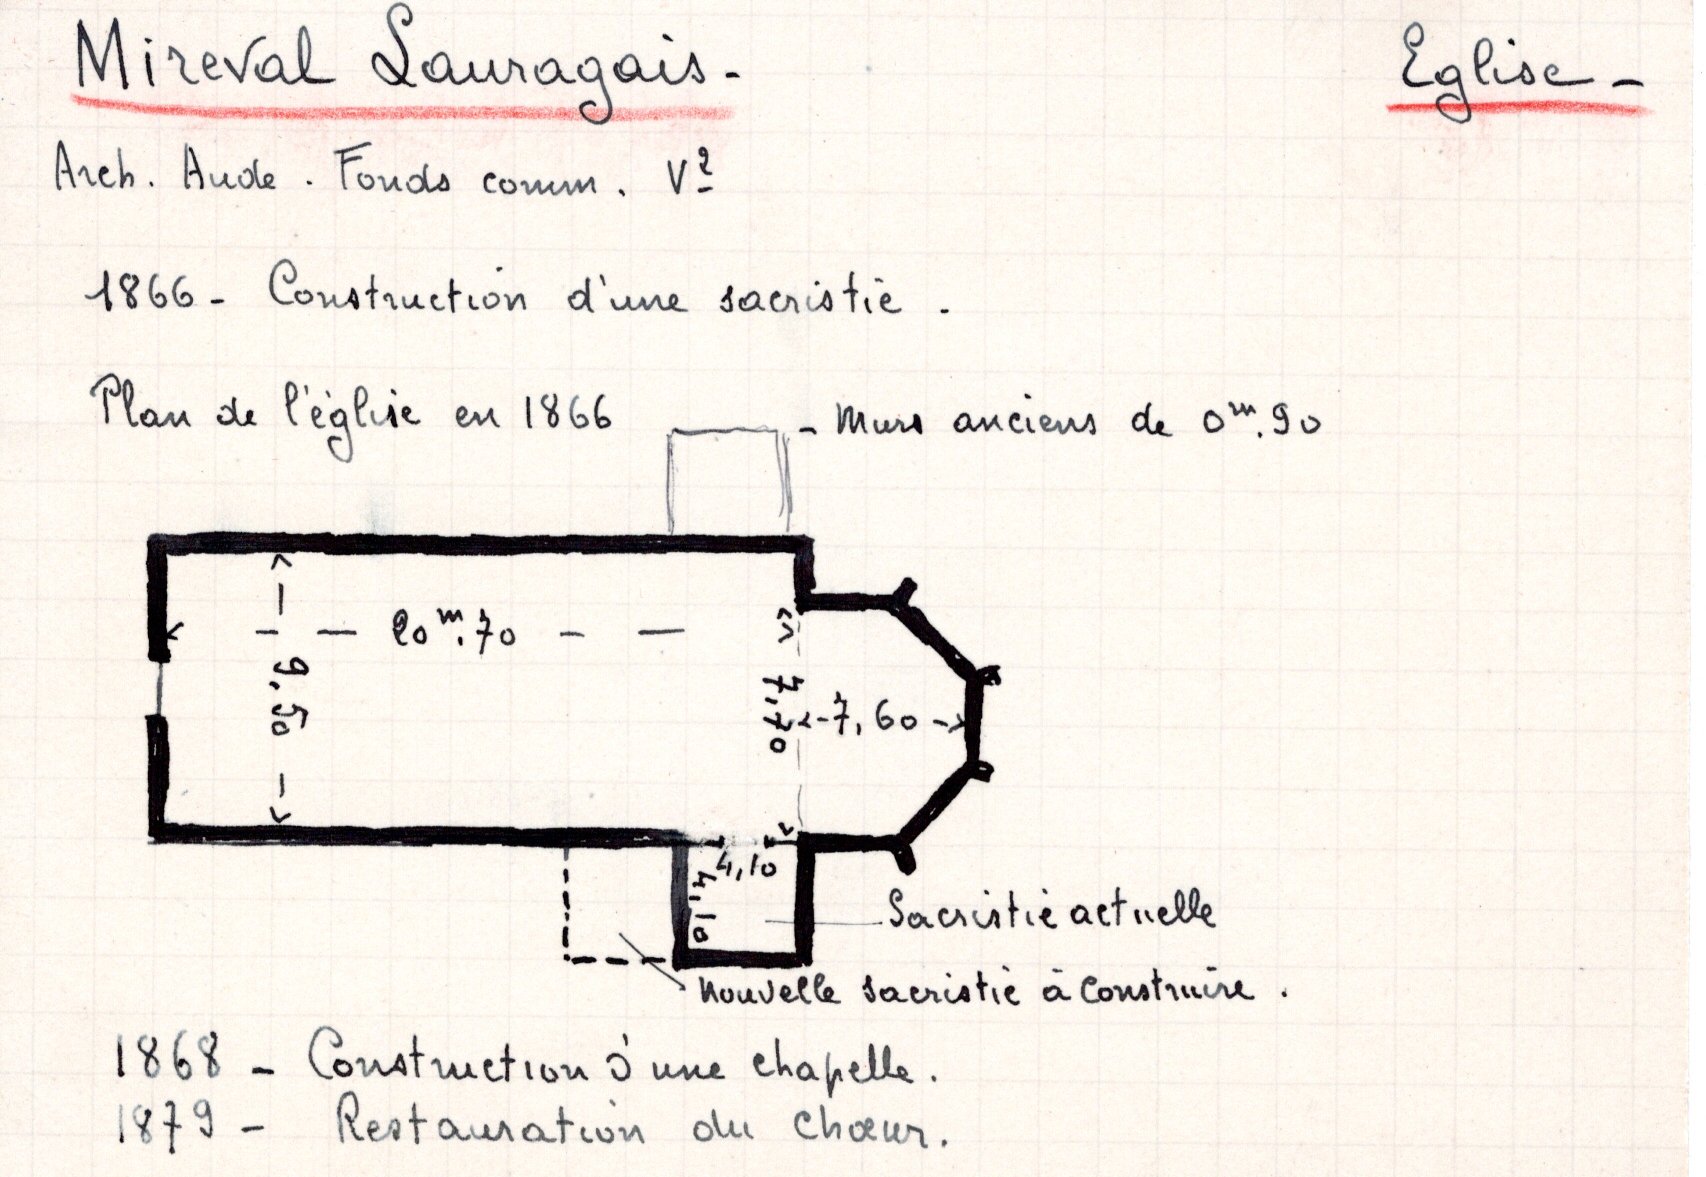 Mireval Lauragais -
Eglise -
Arch. Aude. Fonds comm. V²
1866 - Construction d'une sacristie.
Plan de l'église en 1866
- Murs anciens de 0m.90
20m.70
9,50
7,70
7,60
4,10
4,10
Sacristie actuelle
Nouvelle sacristie à construire.
1868 - Construction d'une chapelle.
1879 - Restauration du chœur.